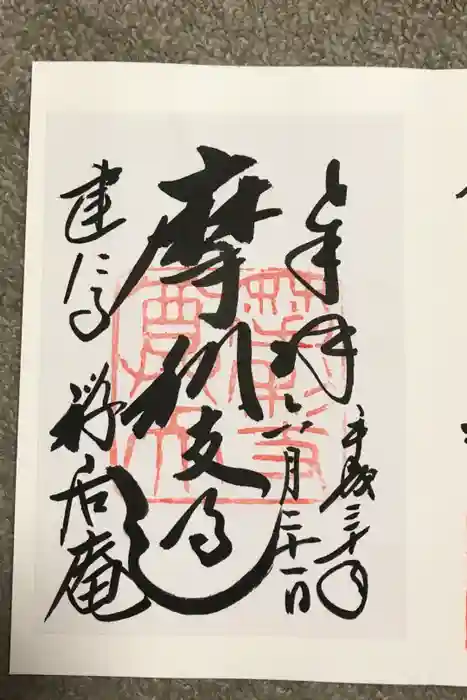 奉拝
平成三十年
六月二十一日
摩利支
建仁寺
禅居庵